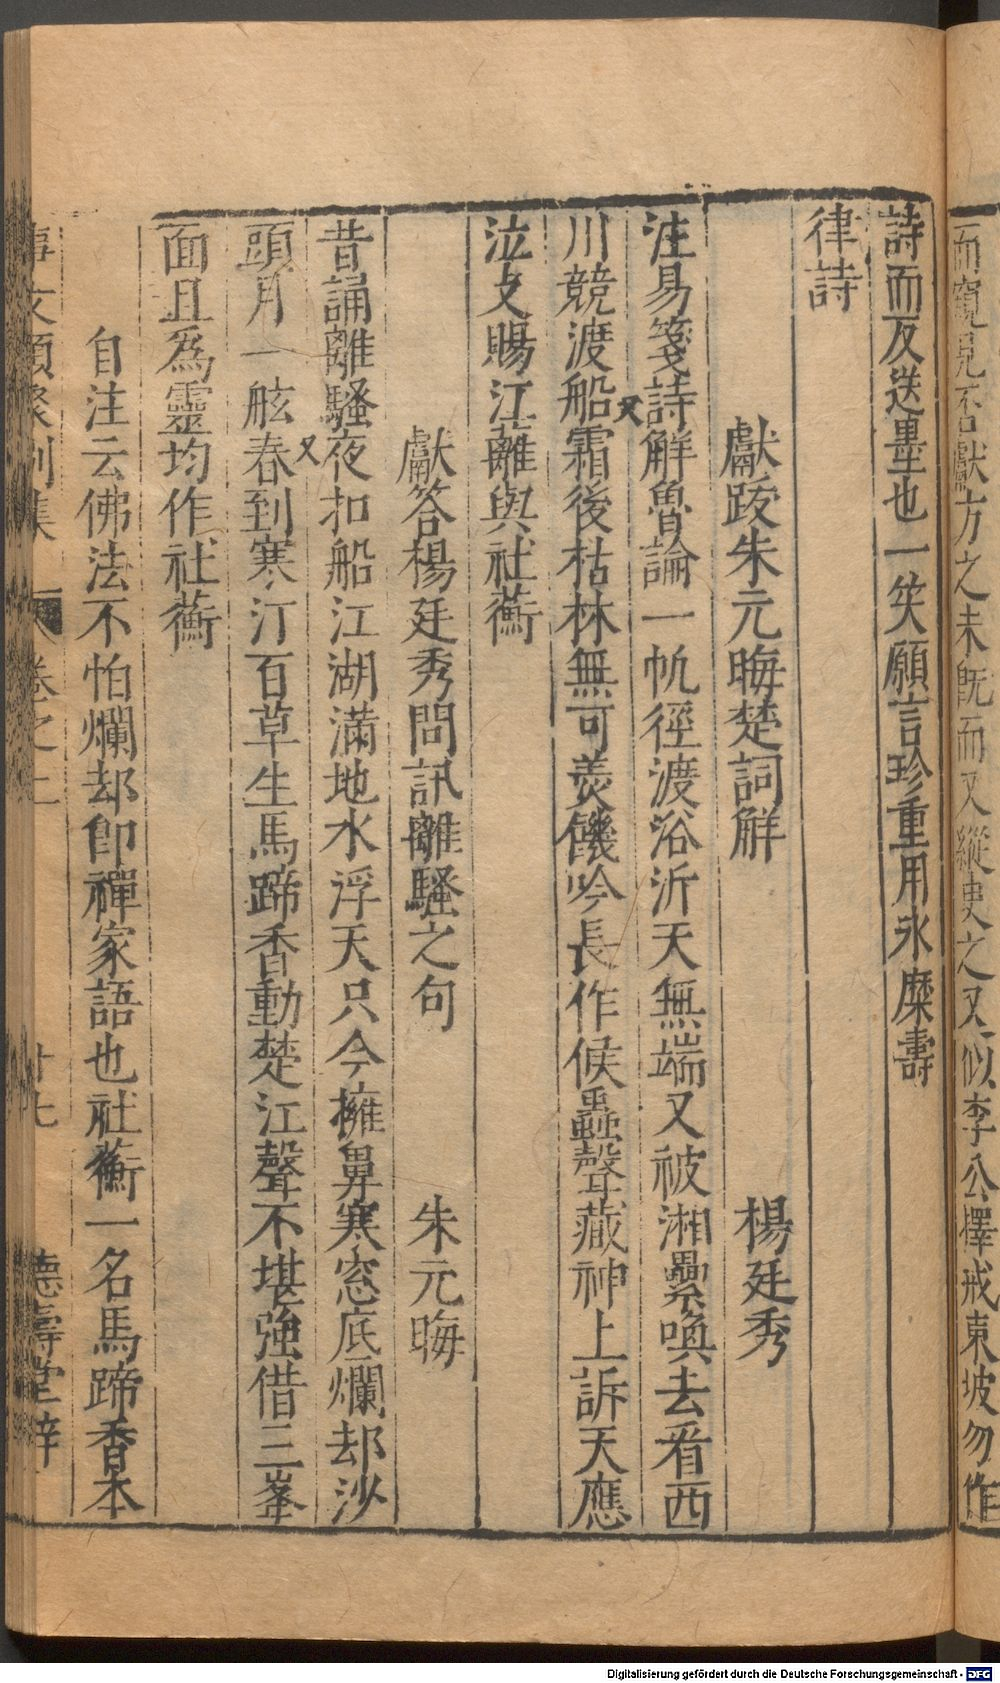 而窺見不獻方之未旣而又縱臾之又似李公擇戒東坡勿作
詩而反送墨也一笑願言珍重用永糜壽
律詩
獻跋朱元晦楚詞解 楊廷秀
注易箋詩解魯論一帆徑渡浴沂天無端又被湘纍喚去看西
川競渡船 又 霜後枯林無可羡饑吟長作候蟲聲藏神上訴天應
泣支賜江蘺與社蘅
獻答楊廷秀問訊離騷之句 朱元晦
昔誦離騷夜扣船江湖滿地水浮天只今擁鼻寒窓底爛却沙
頭月一舷 又 春到寒汀百草生馬蹄香動楚江聲不堪強借三峯
面且為靈均作社蘅
自注云佛法不怕爛却卽禪家語也社蘅一名馬蹄香本
事文類聚別集 卷之二 廿七 德壽堂梓
Digitalisierung gefördert durch die Deutsche Forschungsgemeinschaft - DFG